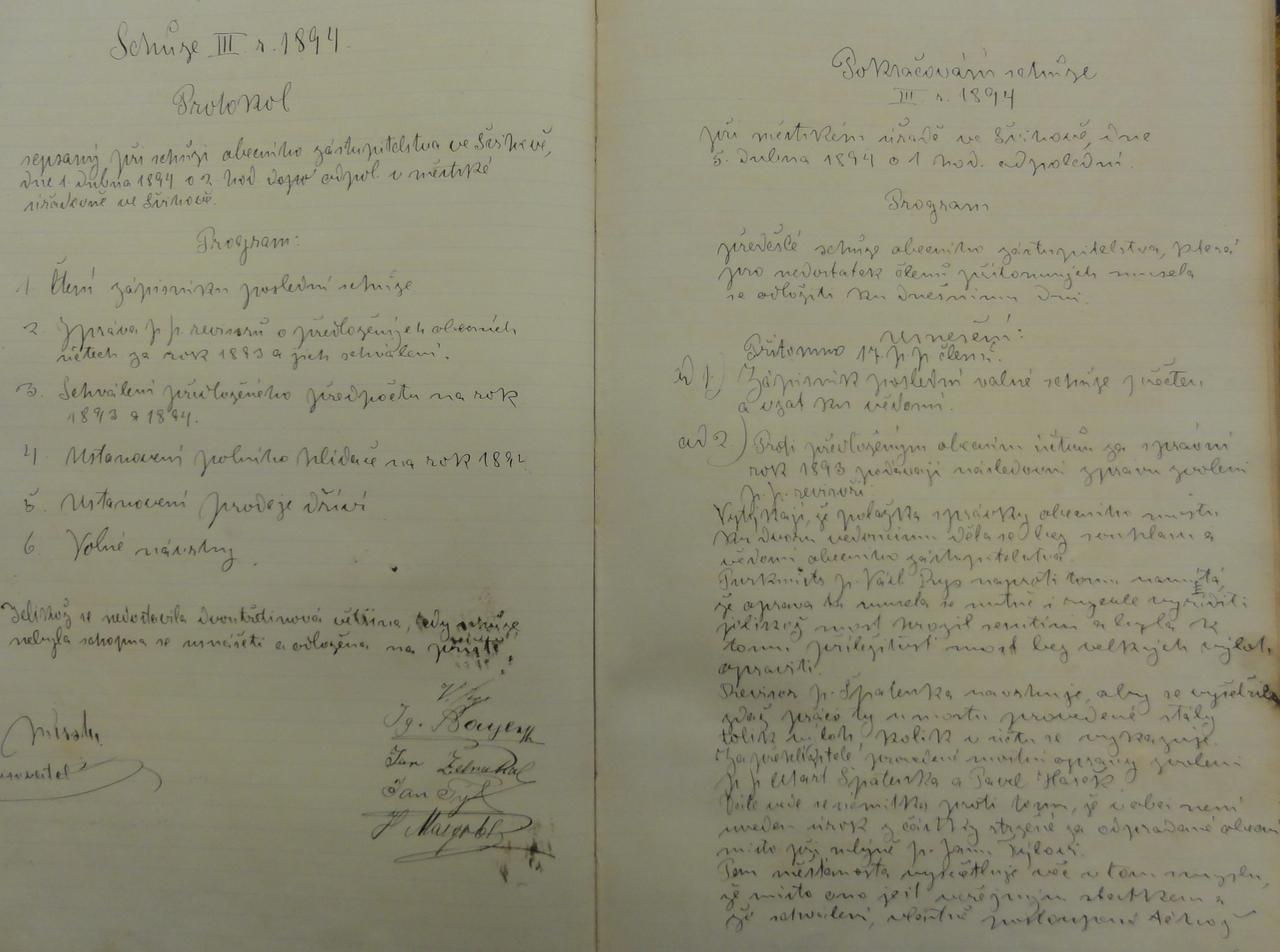 Schůze III. r. 1894.
Protokol
sepsaný při schůzi obecního zástupitelstva ve Švihově,
dne 1. dubna 1894 o 2 hod. odpol. v městské
úřadovně ve Švihově.
Program:
1. Čtení zápisníku poslední schůze
2. Zpráva p. p. revisorů o předložených obecních
účtech za rok 1893 a jich schválení.
3. Schválení předloženého předpočtu na rok
1893 a 1894.
4. Ustanovení polního hlídače na rok 189
5. Ustanovení prodeje dříví
6. Volné návrhy
Jelikož se nedostavila dvoutřetinová většina, tedy schůze
nebyla schopna se usnášeti a odložena na příště.
Ig. Bayer
Jan
Jan Týl
Pokračování schůze
III. r. 1894
při městském úřadě ve Švihově, dne
5. dubna 1894 o 1 hod. odpolední.
Program
předešlé schůze obecního zástupitelstva, která
pro nedostatek členů přítomných musela
se odložiti ku dnešnímu dni.
Usnesení:
Přítomno 17 p. p. členů.
ad 1.) Zápisník poslední valné schůze přečten
a vzat ku vědomí.
ad 2.) Proti předloženým obecním účtům za správní
rok 1893 podávají následovní zprávu zvolení
p. p. revisoři:
Vytýkají, že položka správky obecního mostu
ku dvoru vedoucímu děla se bez souhlasu a
vědomí obecního zástupitelstva.
Purkmistr p. naproti tomu namítá,
že oprava ta musela se nutně i
jelikož most hrozil sesutím a byla k
tomu příležitost most bez velkých výloh
opraviti.
Revisor p. Špalenka navrhuje, aby se vyšetřilo
zdaž práce ty u mostu provedené stály
tolik výloh, kolik v účtu se vykazuje.
Za provedené mostní opravy zvoleni
p. p. Mart. Špalenka a Pavel Hašek
Dále vede se námitka proti tomu, že v obci není
uveden úrok z částky stržené za odprodané obecní
místo při mlýně p. Janu Týlovi.
Pan městanosta vysvětluje věc v tom smyslu,
že místo ono jest veřejným statkem a
že schválení, vlastně postoupení téhož